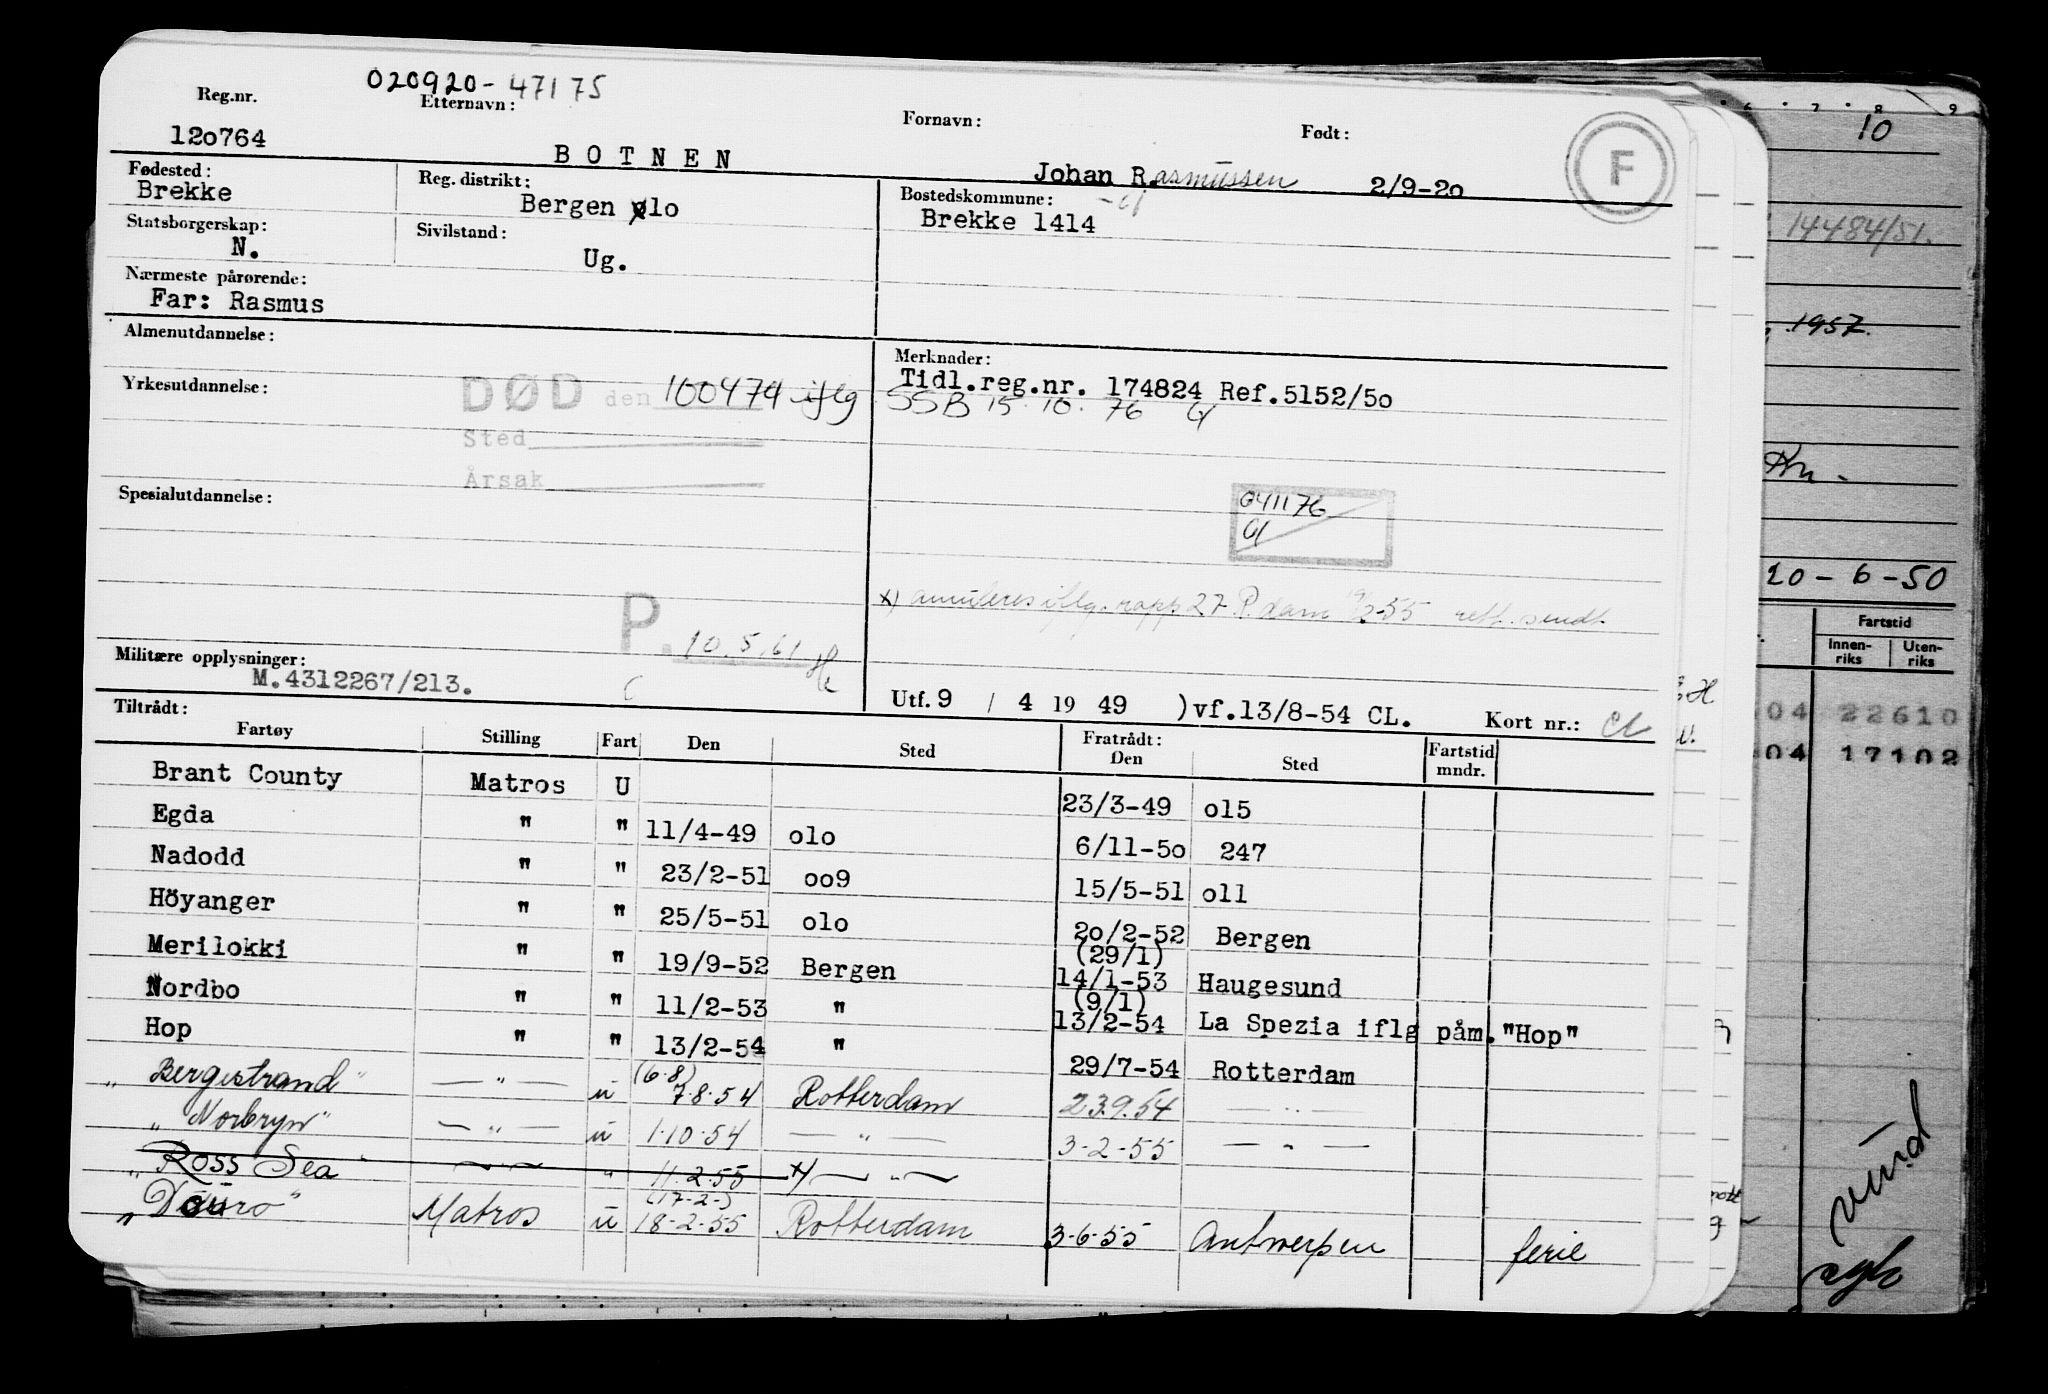 020920-47175
Reg.nr. Etternavn: Fornavn: Født:
120764 BOTNEN Johan Rasmussen 2/9-20
F
Fødested: Reg. distrikt: Bostedskommune:
Brekke Bergen olo Brekke 1414
Statsborgerskap: Sivilstand:
N. Ug.
Nærmeste pårørende:
Far: Rasmus
Almenutdannelse: Merknader:
Tidl.reg.nr. 174824 Ref.5152/5o
Yrkesutdannelse: DØD den 100474 iflg SSB 15.10.76
Sted
Årsak
Spesialutdannelse: 041176
x) annuleres iflg. rapp 27 R.dam 19/2-55 rett. sendt.
P. 10.5.61
Militære opplysninger:
M.4312267/213.
Utf. 9 / 4 19 49 )vf.13/8-54 CL. Kort nr.:
Tiltrådt: Fratrådt:
Fartøy Stilling Fart Den Sted Den Sted Fartstid mndr.
Brant County Matros U 23/3-49 ol5
Egda " " 11/4-49 olo 6/11-5o 247
Nadodd " " 23/2-51 oo9 15/5-51 oll
Höyanger " " 25/5-51 olo 2o/2-52 Bergen
(29/1)
Merilokki " " 19/9-52 Bergen 14/1-53 Haugesund
(9/1)
Nordbo " " 11/2-53 " 13/2-54 La Spezia iflg påm. "Hop"
Hop " " 13/2-54 " 29/7-54 Rotterdam
(6.8)
"Bergestrand" — " — u 7.8.54 Rotterdam 23.9.54 — " —
"Norbryn" — " — u 1.10.54 — " — 3-2-55 — " —
"Ross Sea" — " — " 11.2.55 x) — " —
(17-2-)
"Douro" Matros u 18-2-55 Rotterdam 3-6-55 Antwerpen ferie
6 7 8 9
10
14484/51.
, 1957.
20-6-50
Fartstid
Innenriks Utenriks
04 22610
04 17102